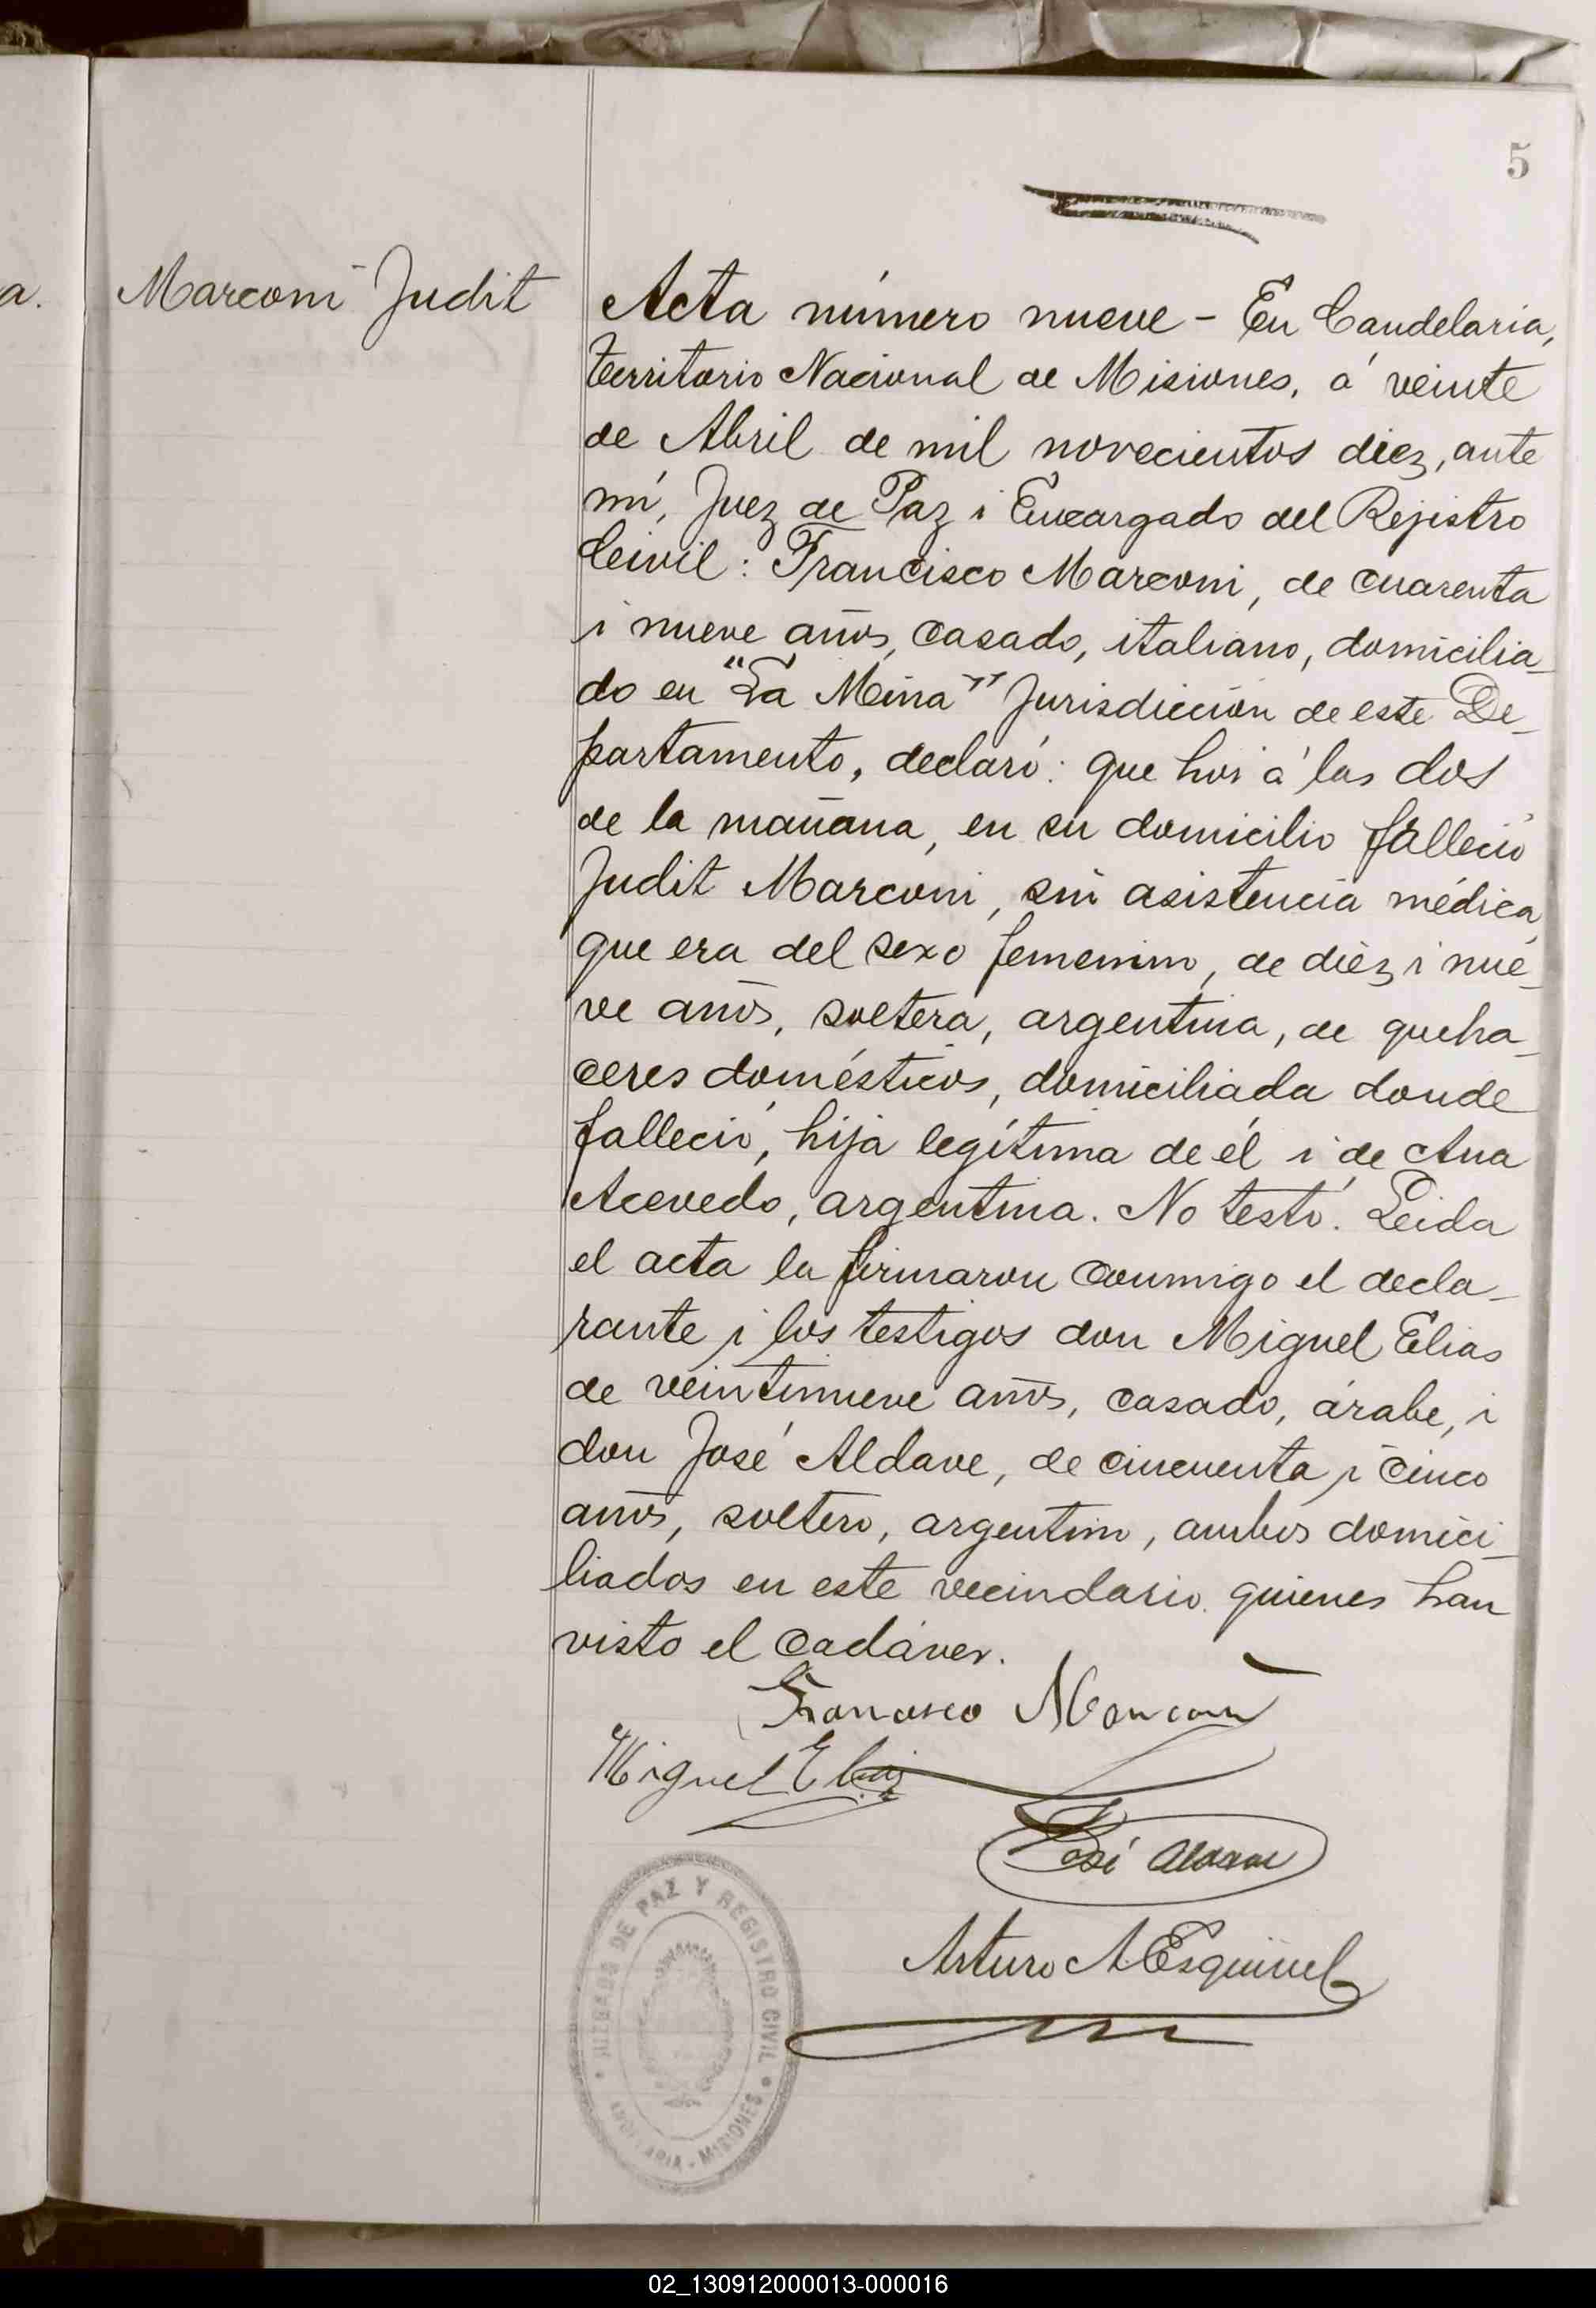 5
a.
Marconi Judit
Acta número nueve - En Candelaria,
territorio Nacional de Misiones, á veinte
de Abril de mil novecientos diez, ante
mí, Juez de Paz i Encargado del Rejistro
Civil: Francisco Marconi, de cuarenta
i nueve años, casado, italiano, domicilia-
do en "La Mina" Jurisdicción de este De-
partamento, declaró: que hoi á las dos
de la mañana, en su domicilio falleció
Judit Marconi, sin asistencia médica,
que era del sexo femenino, de diez i nue-
ve años, soltera, argentina, de queha-
ceres domésticos, domiciliada donde
falleció, hija legítima de él i de Ana
Acevedo, argentina. No testó. Leida
el acta la firmaron conmigo el decla-
rante i los testigos don Miguel Elias
de veintinueve años, casado, árabe, i
don José Aldave, de cincuenta i cinco
años, soltero, argentino, ambos domici-
liados en este vecindario quienes han
visto el cadáver.
Francisco Marconi
Miguel Elias
José Aldave
Arturo A Esquivel
JUZGADO DE PAZ Y REGISTRO CIVIL
CANDELARIA - MISIONES
02_130912000013-000016